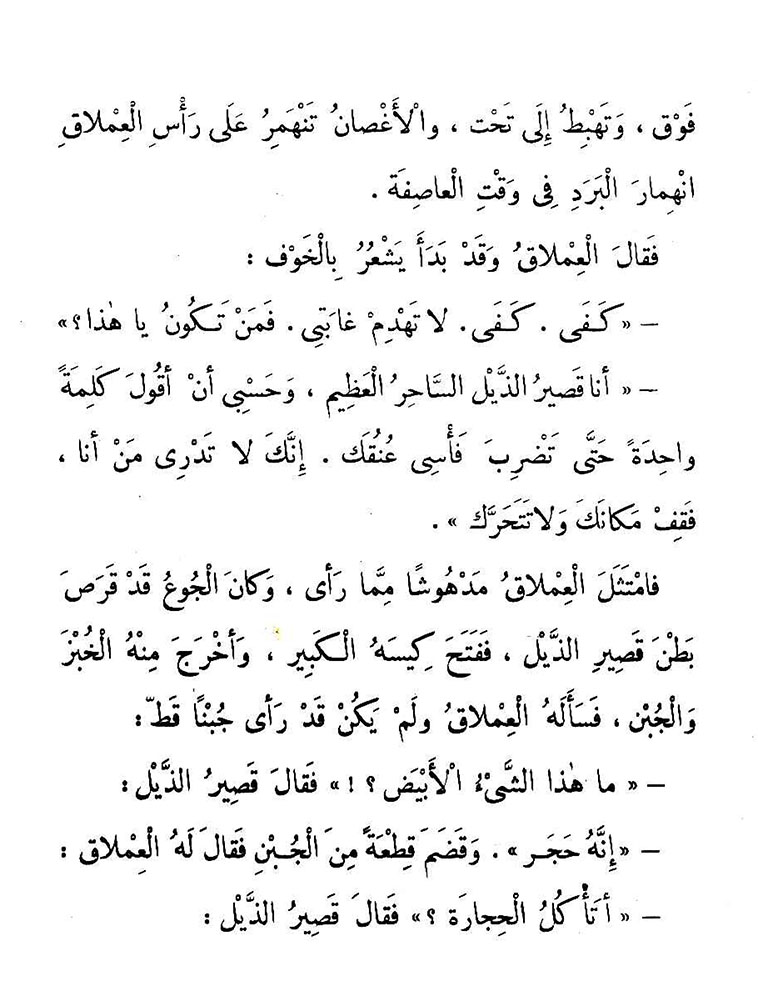 فَوْق ، وَتَهْبِطُ إِلَى تَحْت ، والْأَغْصانُ تَنْهَمِرُ عَلَى رَأْسِ الْعِمْلاقِ
انْهِمارَ الْبَرَدِ فِى وَقْتِ الْعاصِفَة .
فَقالَ الْعِمْلاقُ وَقَدْ بَدَأَ يَشْعُرُ بِالْخَوْف :
– « كَفَى . كَفَى . لا تَهْدِمْ غابَتِى . فَمَنْ تَكُونُ يا هٰذا ؟ »
– « أنا قَصِيرُ الذَّيْل السَّاحِرُ الْعَظِيم ، وَحَسْبِى أنْ أقُولَ كَلِمَةً
واحِدَةً حَتَّى تَضْرِبَ فَأْسِى عُنُقَك . إِنَّكَ لا تَدْرِى مَنْ أنا ،
فَقِفْ مَكانَكَ وَلا تَتَحَرَّك » .
فامْتَثَلَ الْعِمْلاقُ مَدْهُوشًا مِمَّا رَأى ، وَكانَ الْجُوعُ قَدْ قَرَصَ
بَطْنَ قَصِيرِ الذَّيْل ، فَفَتَحَ كِيسَهُ الْكَبِير ، وَأخْرَجَ مِنْهُ الْخُبْزَ
وَالْجُبْن ، فَسَأَلَهُ الْعِمْلاقُ ولَمْ يَكُنْ قَدْ رَأى جُبْنًا قَطّ :
– « ما هٰذا الشَّىْءُ الْأَبْيَض ؟ ! » فَقالَ قَصِيرُ الذَّيْل :
– « إِنَّهُ حَجَر » . وَقَضَمَ قِطْعَةً مِنَ الْجُبْنِ فَقالَ لَهُ الْعِمْلاق :
– « أتَأْكُلُ الْحِجارَة ؟ » فَقالَ قَصِيرُ الذَّيْل :